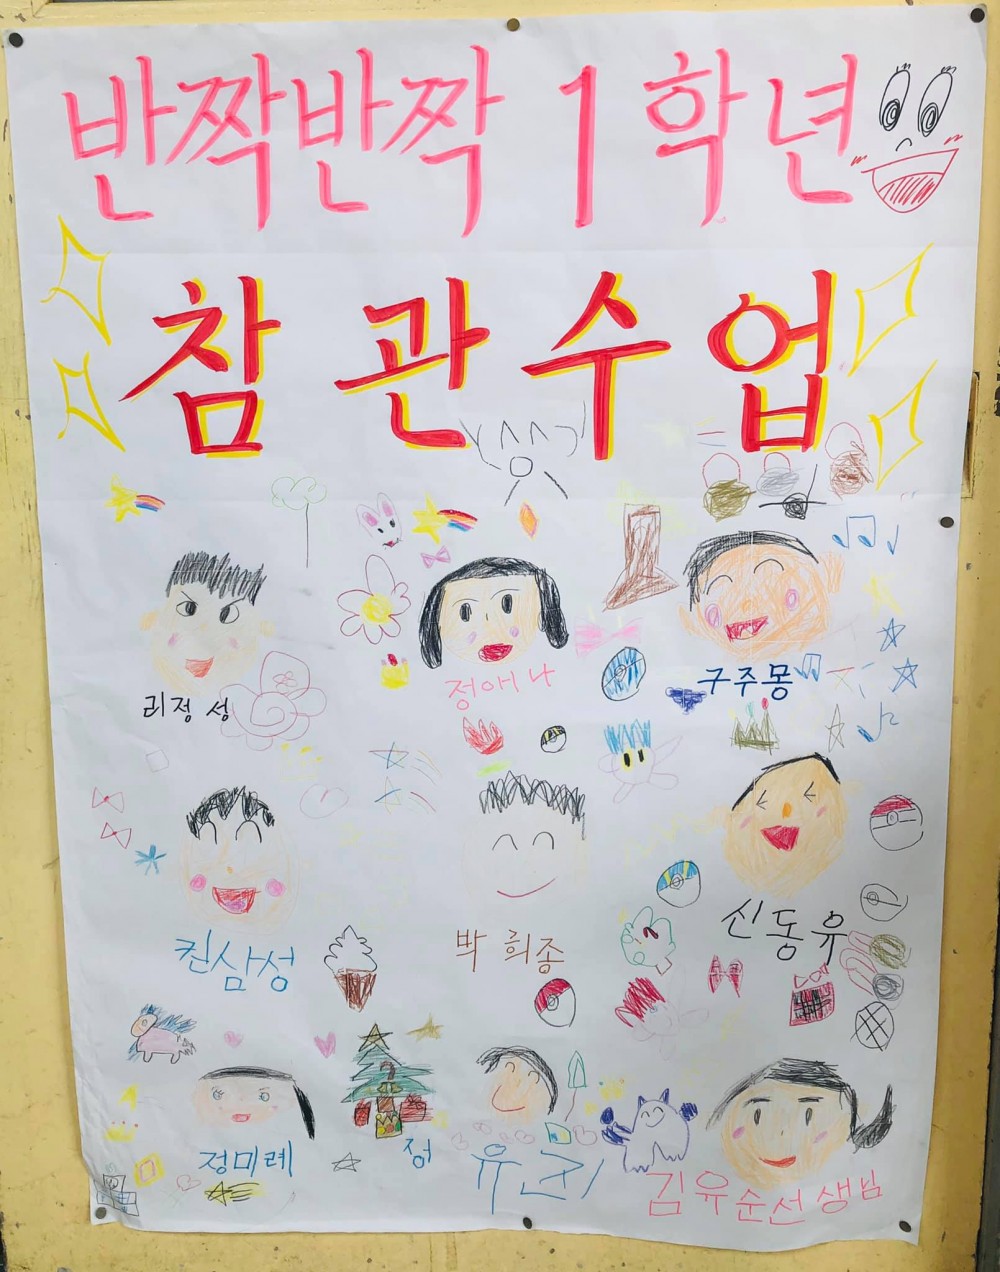 반짝반짝 1학년
참관수업
정애나
구주몽
킨삼성
박희종
신동유
정미례
정
김유순선생님